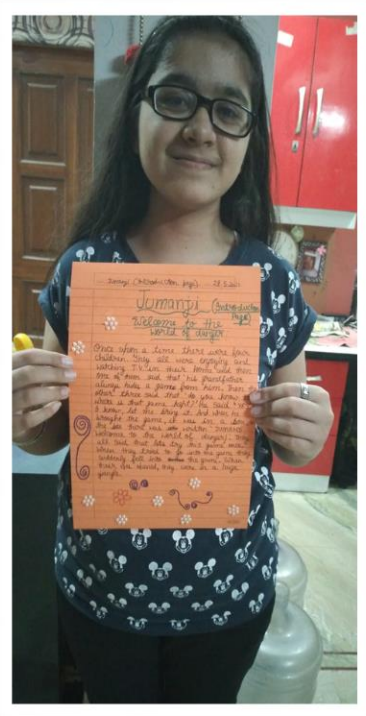 Jumanji (Introduction Page)
Jumanji (Introduction Page)
Welcome to the
world of danger
Once upon a time there were four
children. They all were enjoying and
watching T.V. in their home and then
one of them said that his grandfather
always hides a game from him. Then
other three said that "do you know
where is that game, right?" He said, "Yes,
I know, let me bring it. And when he
the game, it was in a box.
the box there was written "Jumanji
welcome to the world of danger). They
all said that lets try this game once.
When they tried to go into the game, they
suddenly fell into the game. When
their eyes opened, they were in a large
jungle.